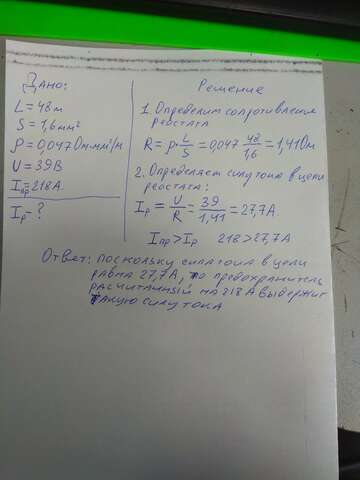 Дано:
L = 48 м
S = 1,6 мм²
ρ = 0,047 Ом·мм²/м
U = 39 В
Iпр = 218 А
Iр - ?
Решение
1. Определим сопротивление
реостата
R = ρ · L/S = 0,047 48/1,6 = 1,41 Ом
2. Определяем силу тока в цепи
реостата:
Iр = U/R = 39/1,41 = 27,7 А
Iпр > Iр 218 > 27,7 А
Ответ: поскольку сила тока в цепи
равна 27,7 А, то предохранитель
расчитанный на 218 А выдержит
такую силу тока